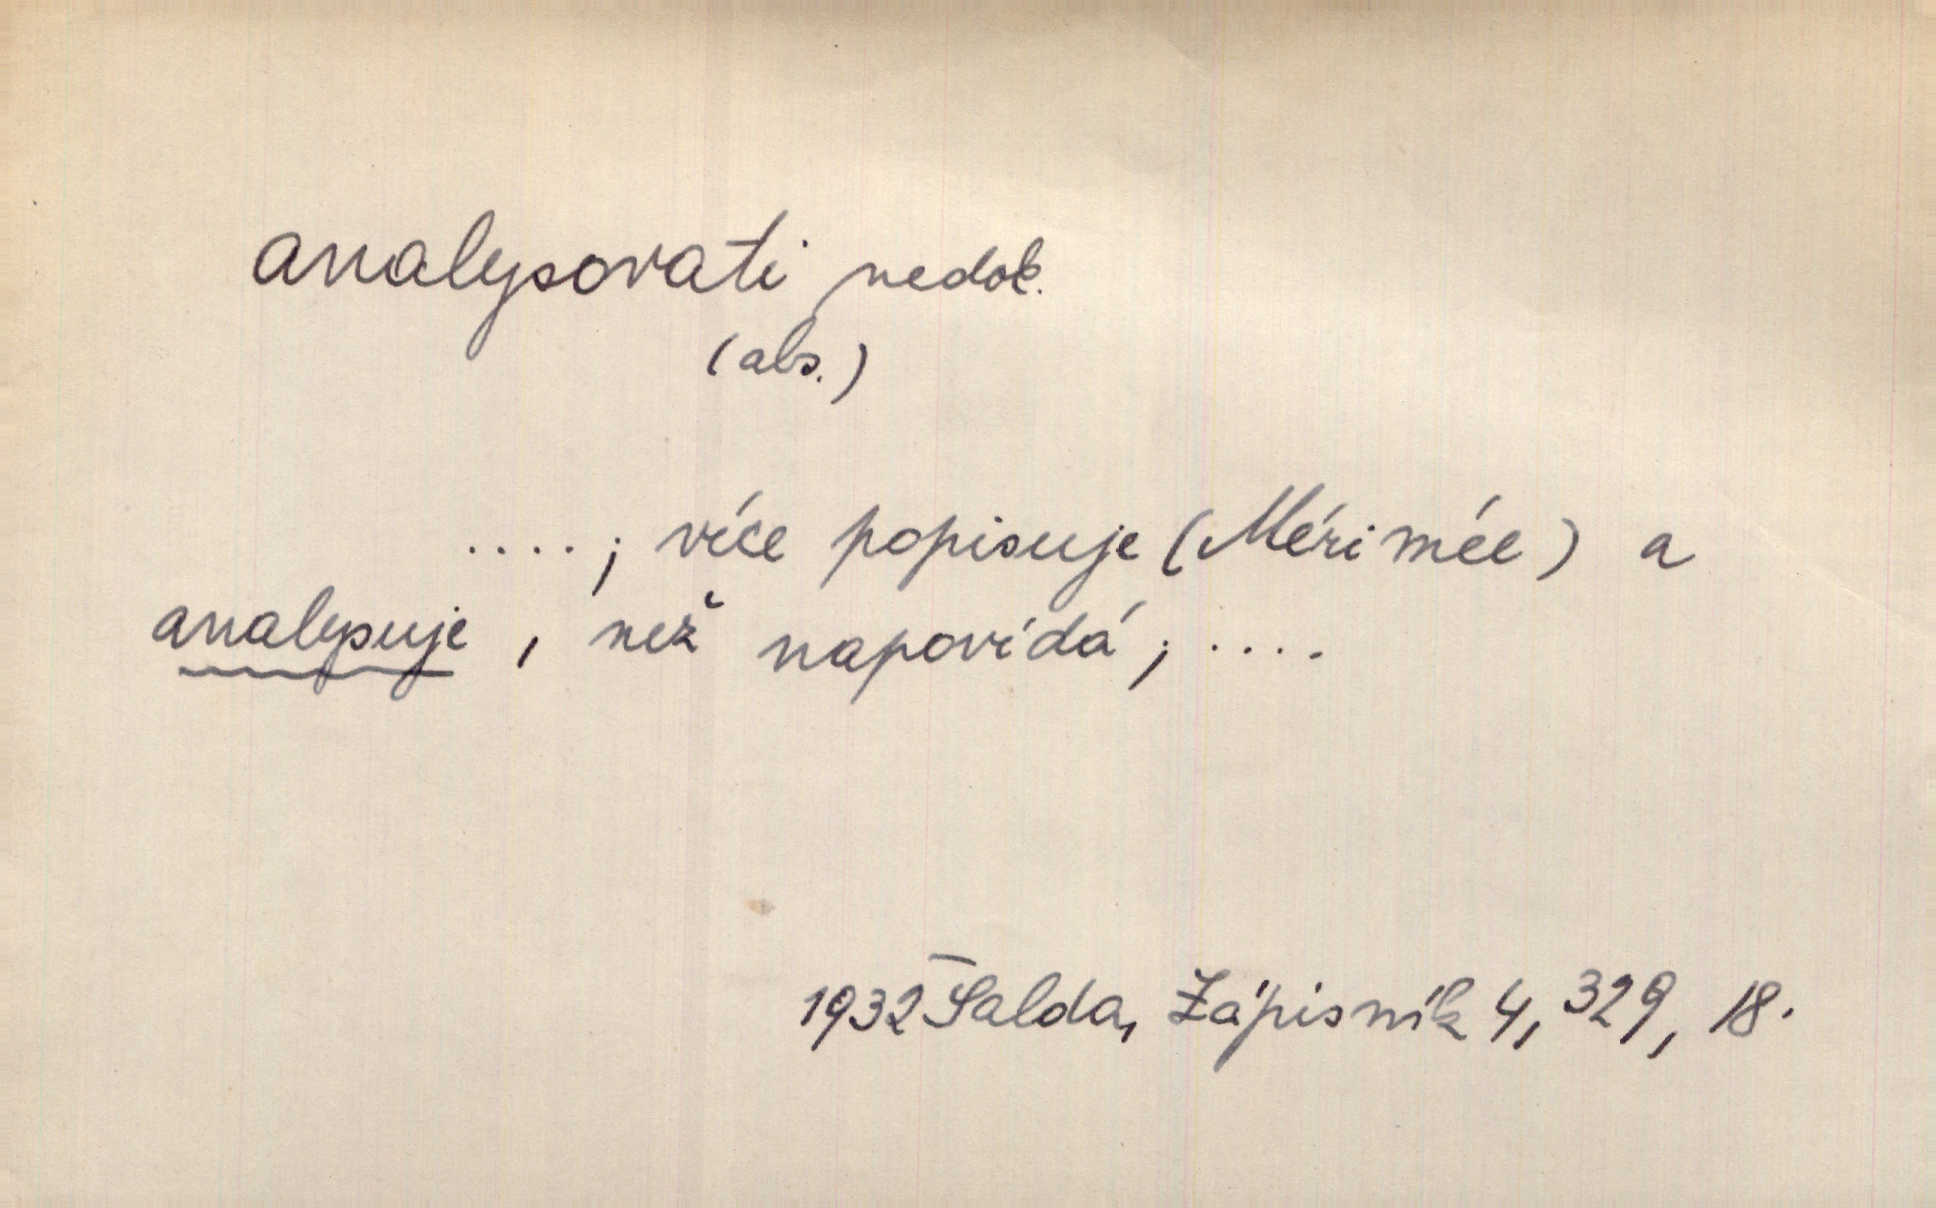 analysovati nedok.
(abs.)
....; více popisuje (Mérimée) a
analysuje, než napovídá; ....
1932 Šalda, Zápisník 4, 329, 18.